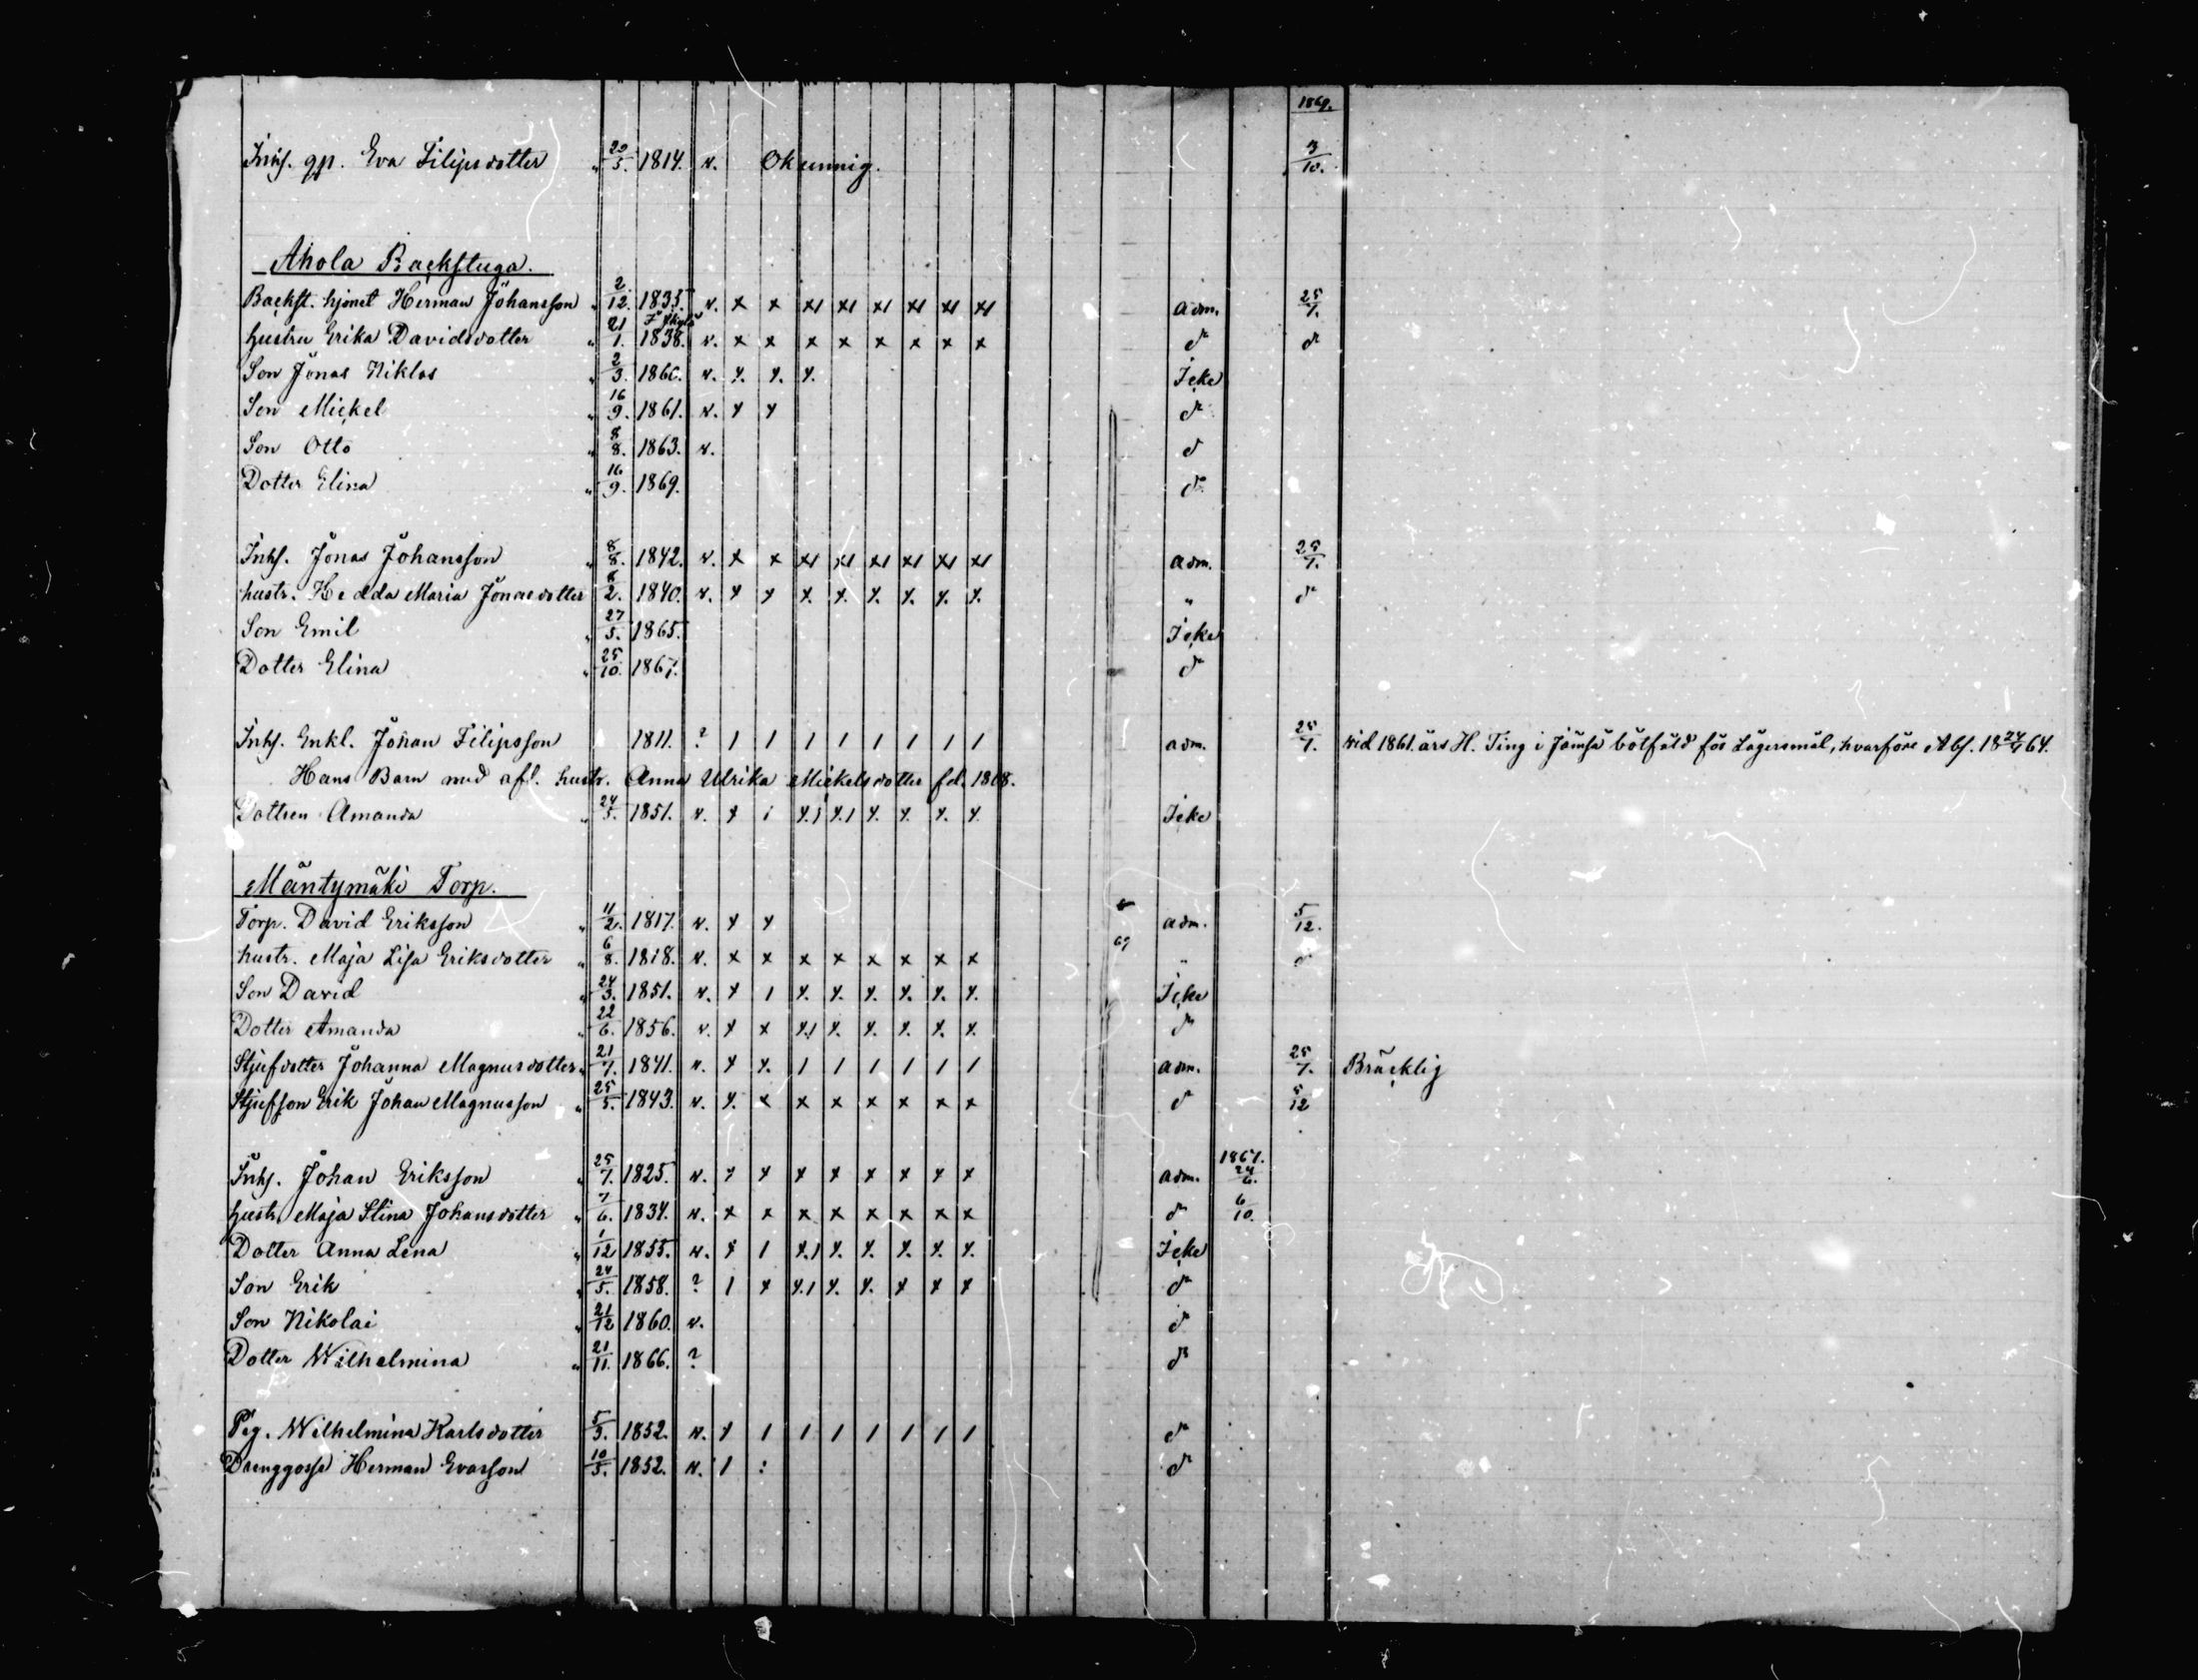 1869.
Inhs. gp. Eva Filipsdotter " 20/3. 1814. v. Okunnig. 3/10.
Ahola Backstuga.
Backst. hjonet Herman Johansson " 2/12. 1835. v. x x x1 x1 x1 x1 x1 x1 adm. 25/7.
hustru Erika Davidsdotter " 21/1. 1838. v. x x x x x x x x do do
Son Jonas Niklas " 2/3. 1860. v. Icke
Son Mickel " 16/9. 1861. v. do
Son Otto " 8/8. 1863. v. do
Dotter Elina " 16/9. 1869. do
Inhs. Jonas Johansson " 8/8. 1842. v. x x x1 x1 x1 x1 x1 x1 adm. 25/7.
hustr. Hedda Maria Jonaedotter 2. 1840. v. " do
Son Emil " 27/5. 1865. Icke
Dotter Elina " 25/10. 1867. do
Inhs. Enkl. Johan Filipsson 1811. ? / / / / / / / / adm. 25/7. vid 1861. års H. Ting i Jämsä bötfäld för Lägersmål, hvarföre Abs. 18 24/4 64.
Hans Barn med afl. hustr. Anna Ulrika Mickelsdotter fd. 1808.
Dottren Amanda " 24/5. 1851. v. Icke
Mäntymäki Torp.
Torp. David Eriksson " 11/2. 1817. v. adm. 5/12.
hustr. Maja Lisa Eriksdotter " 6/8. 1818. v. x x x x x x x x 69 " do
Son David " 24/3. 1851. v. Icke
Dotter Amanda " 22/6. 1856. v. do
Stjufdotter Johanna Magnusdotter " 21/7. 1841. v. adm. 25/7. Bräcklig
Stjufson Erik Johan Magnusson " 25/5. 1843. v. do 5/12
Inhs. Johan Eriksson " 25/7. 1825. v. adm. 1867. 24/6.
hustr. Maja Stina Johansdotter " 7/6. 1834. v. x x x x x x x x do 6/10.
Dotter Anna Lena " 1/12 1855. v. Icke
Son Erik " 24/5. 1858. ? do
Son Nikolai " 21/12 1860. v. do
Dotter Wilhelmina " 21/11. 1866. ? do
Pig. Wilhelmina Karlsdotter 5/3. 1852. v. do
Drenggosse Herman Evasson 10/3. 1852. v. / : do